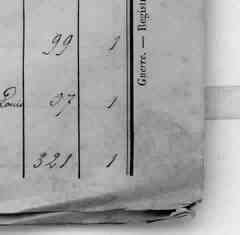 99 1
Louis 97 1
321 1
Guerre. — Regist